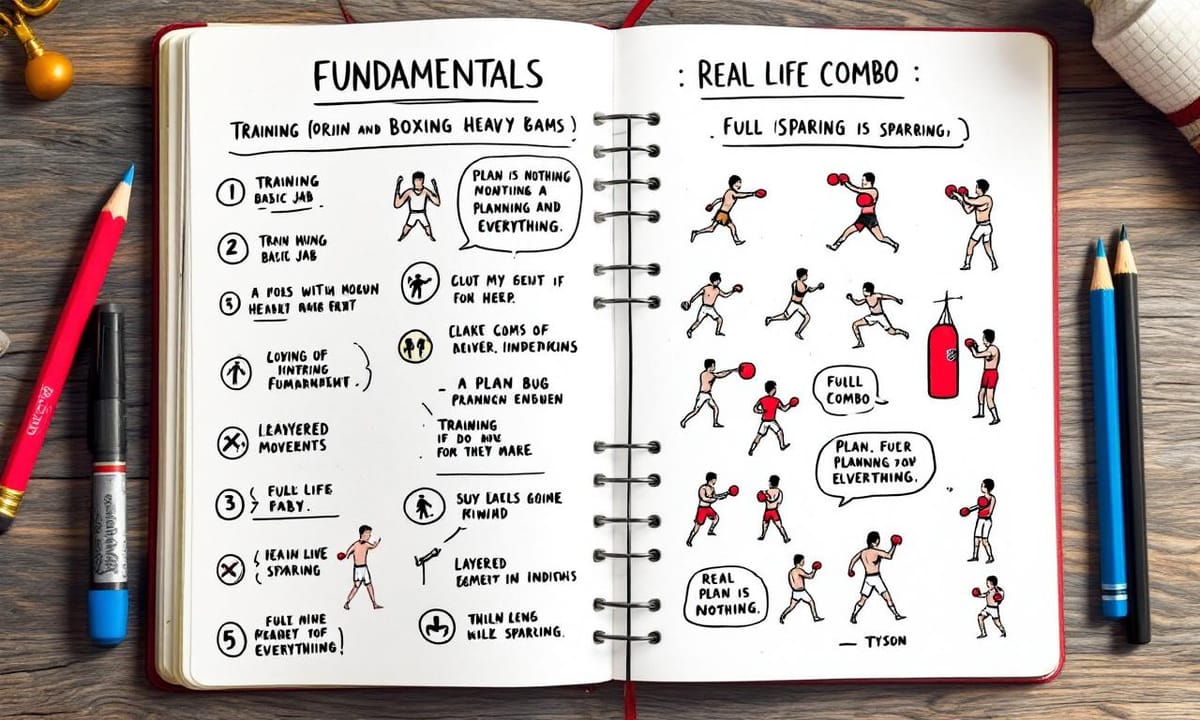 FUNDAMENTALS
TRAINING (ORJIN AND BOXING HEAVY BAMS)
1 TRAINING
BASIC JAB
2 TRAIN HUNG
BASIC JAB
A POLS WITH
LOVING OF
FUMARNDENT.
LEAVYERED
MOVERENTS
3 FULL LIFE
FABY.
LIVE
SPARING
5 FULL MINE
TOF
EVERYTHIING!
PLAN IS NOTHING
NONTIING A
PLANNING AND
EVERYTHING.
CLOT MY GENT IF
FOR HEEP.
CLAKE COMS OF
- A PLAN BUG
PRANNCN ENBUEN
TRAINING
IF DO
FOR THEY MARE
SUY LACLS GOINE
KIWIND
LAYERED
IN
THLN LENG
SPARLING.
: REAL LIFE COMBO :
. FULL (SPARING IS SPARRING,)
FUILL
COMBO
PLAN. FUER
PLANNING
ELVERTHING.
REAL
PLAN IS
NOTHING.
— TYSON